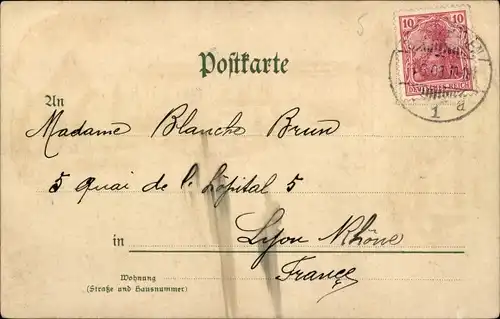 5
10 10
DEUTSCHES REICH
1 a
Postkarte
An
Madame Blanche Brun
5 Quai de l. Hôpital 5
in Lyon Rhône
France
Wohnung
(Straße und Hausnummer)